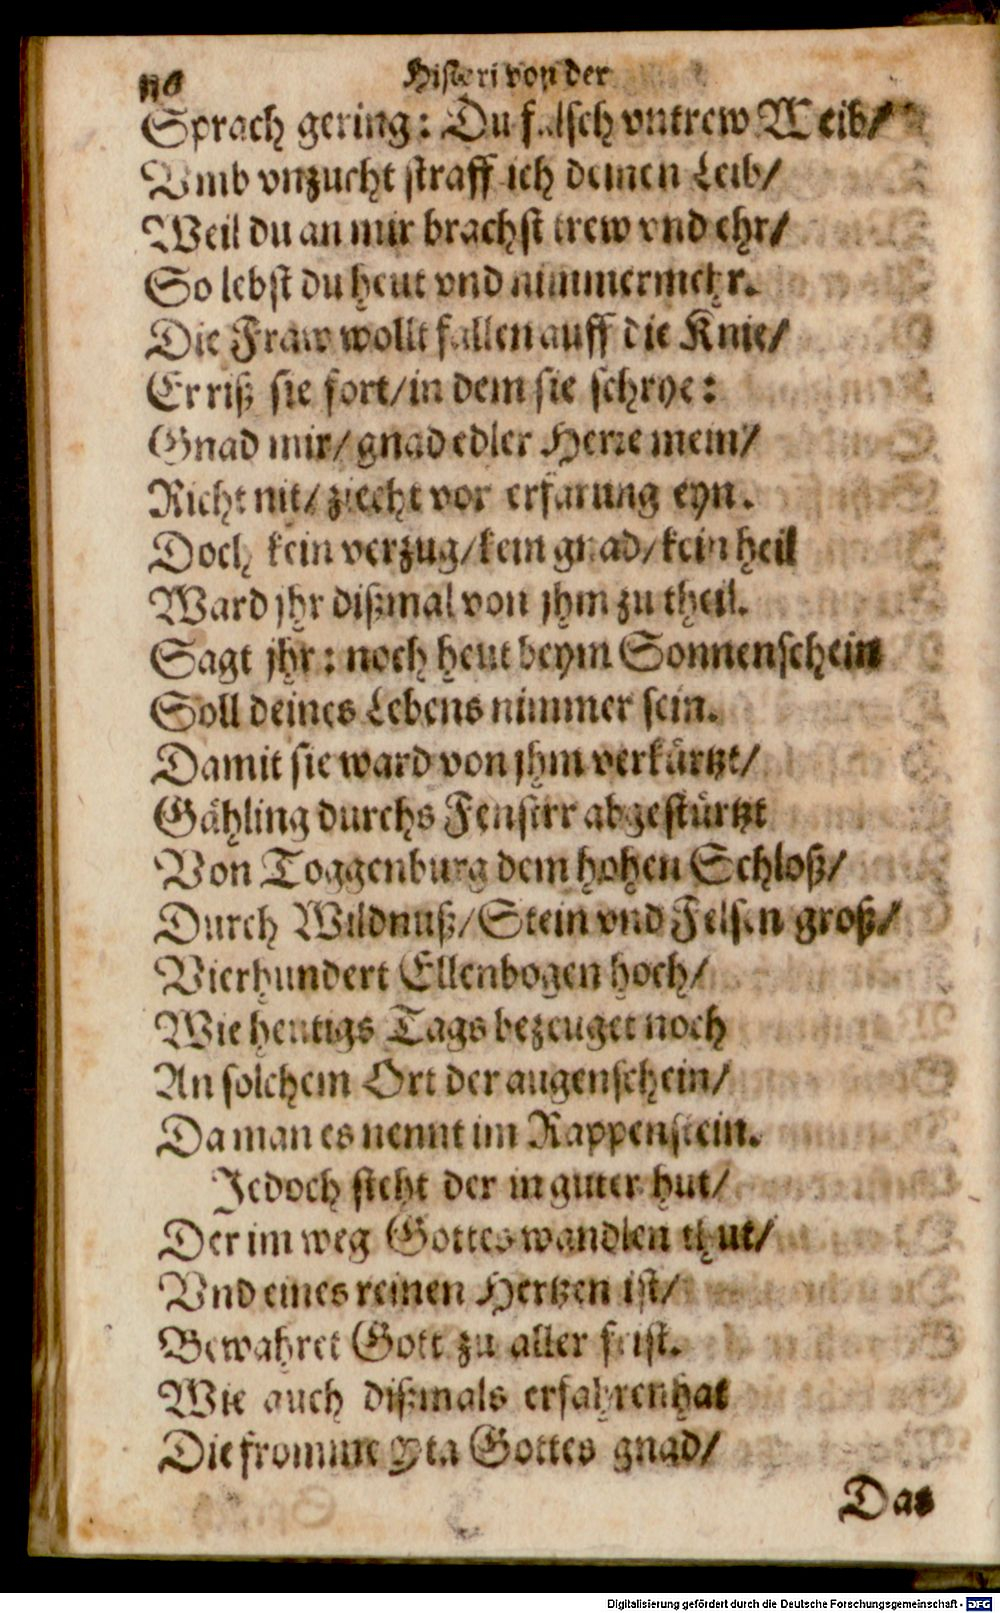 116 Histori von der
Sprach gering: Du falsch vntrew Weib/
Vmb vnzucht straff ich deinen Leib/
Weil du an mir brachst trew vnd ehr/
So lebst du heut vnd nimmermehr.
Die Fraw wollt fallen auff die Knie/
Er riß sie fort/ in dem sie schrye:
Gnad mir/ gnad edler Herre mein/
Richt nit/ ziecht vor erfarung eyn.
Doch kein verzug/ kein gnad/ kein heil
Ward jhr dißmal von jhm zu theil.
Sagt jhr: noch heut beym Sonnenschein
Soll deines Lebens nimmer sein.
Damit sie ward von jhm verkürtzt/
Gähling durchs Fenster abgestürtzt
Von Toggenburg dem hohen Schloß/
Durch Wildnuß/ Stein vnd Felsen groß/
Vierhundert Ellenbogen hoch/
Wie heutigs Tags bezeuget noch
An solchem Ort der augenschein/
Da man es nennt im Rappenstein.
Jedoch steht der in guter hut/
Der im weg Gottes wandlen thut/
Vnd eines reinen Hertzen ist/
Bewahret Gott zu aller frist.
Wie auch dißmals erfahren hat
Die fromme Yta Gottes gnad/
Das
Digitalisierung gefördert durch die Deutsche Forschungsgemeinschaft - DFG